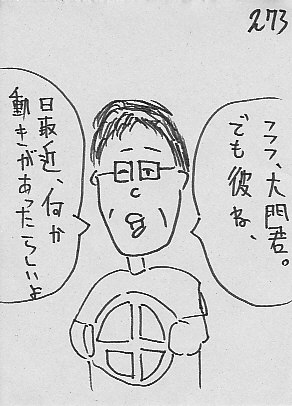 273
フフフ、大門君。
でも彼ね、
日最近、何か
動きがあったらしいよ